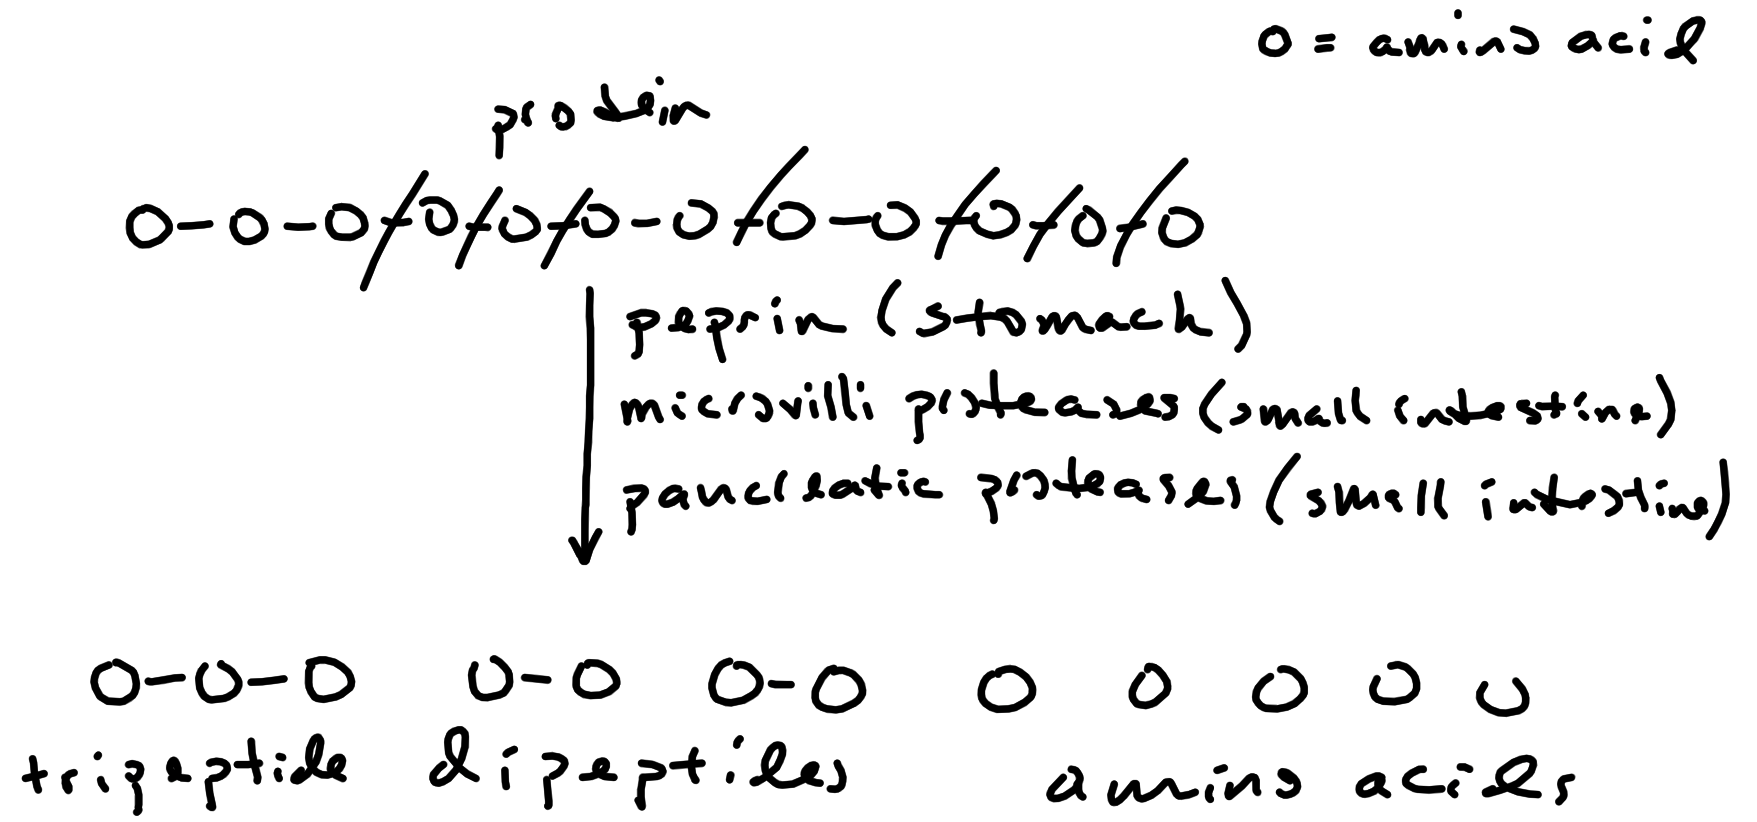 O = amino acid
protein
pepsin (stomach)
microvilli proteases (small intestine)
pancreatic proteases (small intestine)
tripeptide dipeptides amino acids